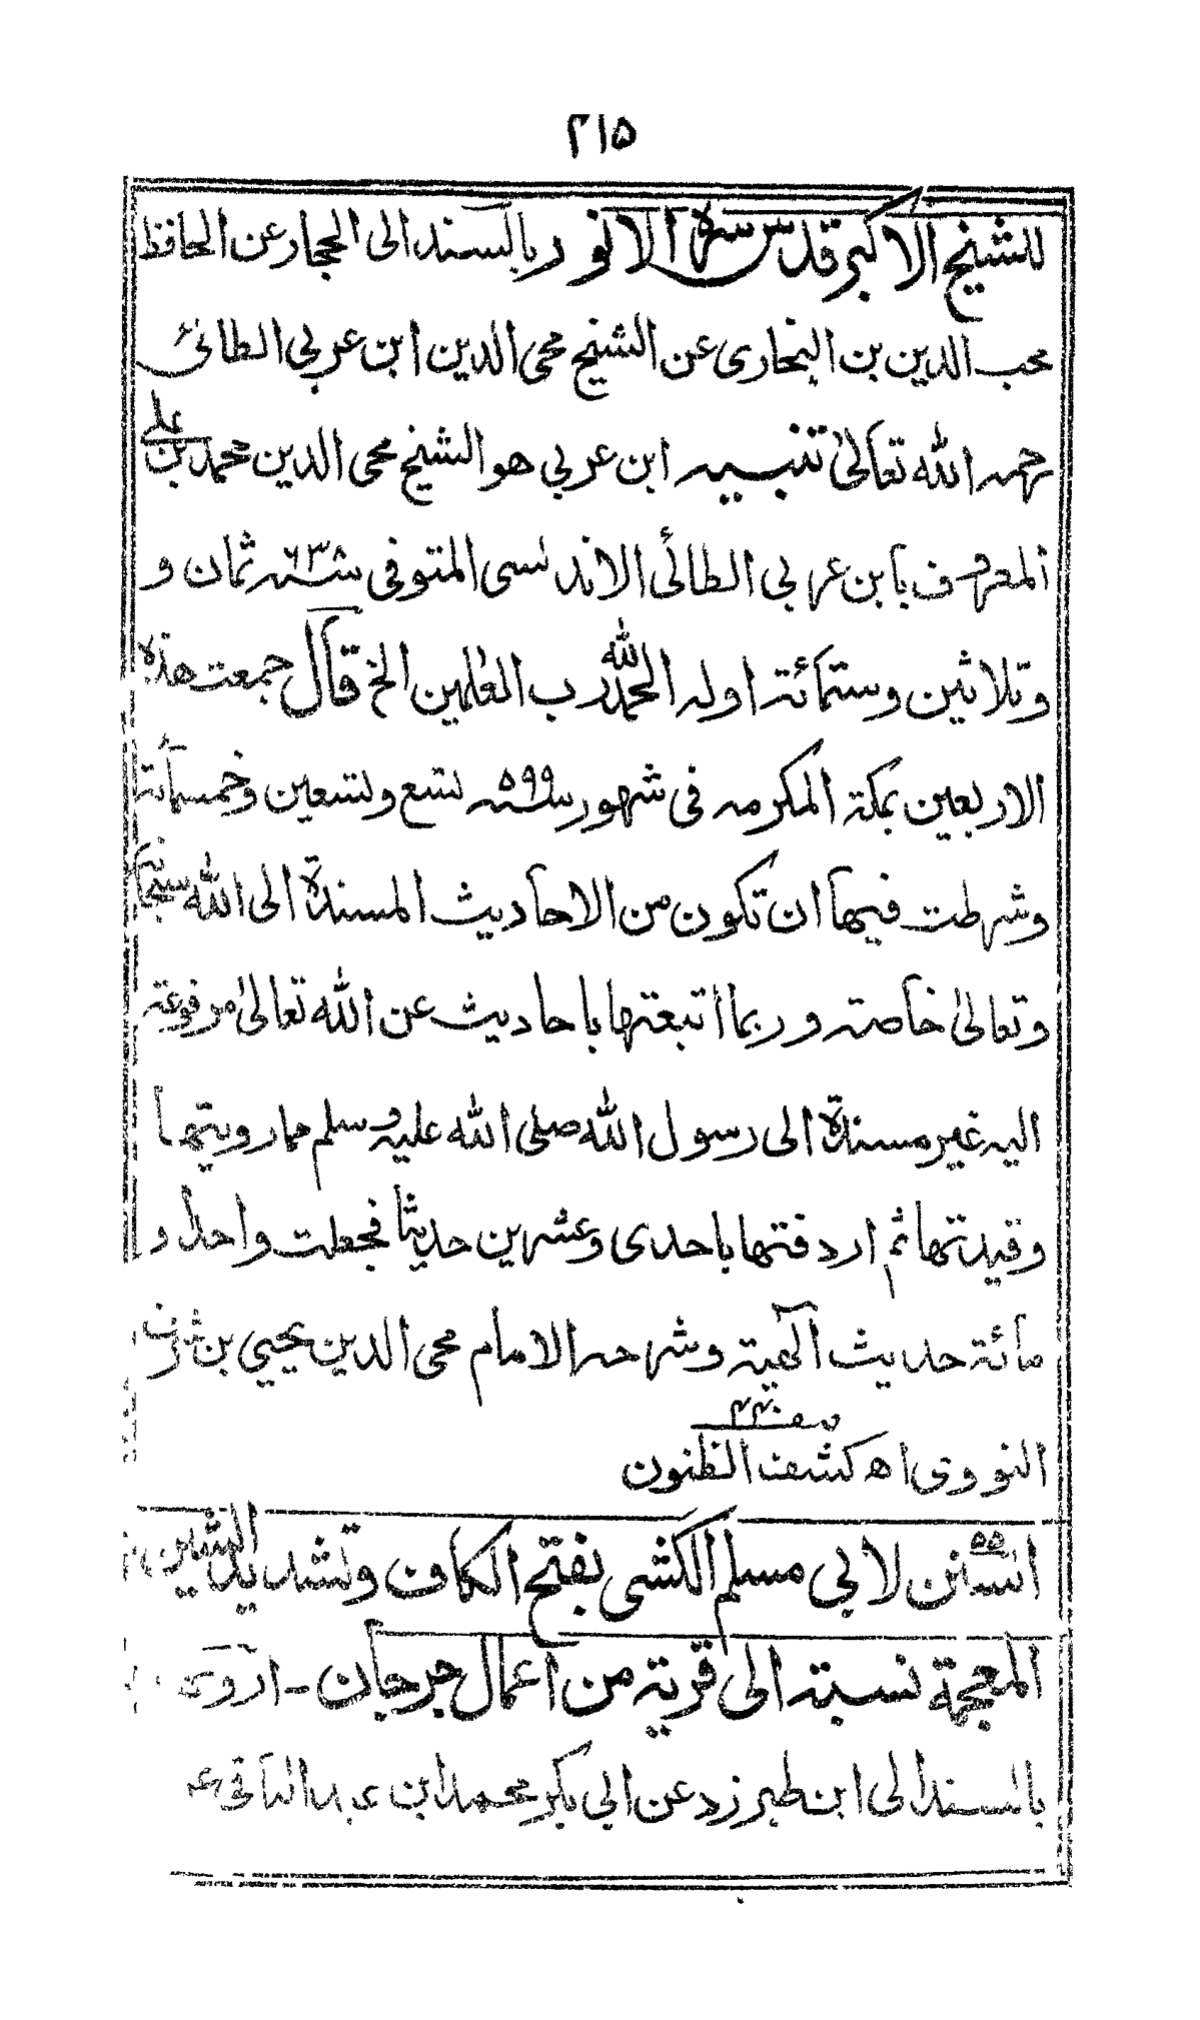 ٢١٥
للشيخ الاكبر قدس سره الانور بالسند الى الحجار عن الحافظ
محب الدين بن النجارى عن الشيخ محى الدين ابن عربي الطائى
رحمه الله تعالىٰ تنبيه ابن عربي هو الشيخ محى الدين محمد بن على
المعروف بابن عربي الطائى الاندلسى المتوفى سنة ٦٣٨ ثمان و
وثلاثين وستمائة اوله الحمد لله رب العٰلمين الخ قال جمعت هذه
الاربعين بمكة المكرمه فى شهور سنه ٥٩٩ تسع وتسعين وخمسمائة
وشرطت فيها ان تكون من الاحاديث المسندة الى الله سبحانه
وتعالىٰ خاصة وربما اتبعتها باحاديث عن الله تعالىٰ مرفوعة
اليه غير مسندة الى رسول الله صلى الله عليه وسلم مما رويتها
وقيدتها ثم اردفتها باحدى وعشرين حديثا فجعلت واحدا و
مائة حديث آلهية وشرحه الامام محى الدين يحيي بن شرف
النووى اه كشف الظنون
السنن ٥٥ لابي مسلم الكشى بفتح الكاف وتشديد الشين
المعجمة نسبة الى قرية من اعمال جرجان - اروى
بالسند الى ابن طبرزد عن ابي بكر محمد ابن عبد الباقى